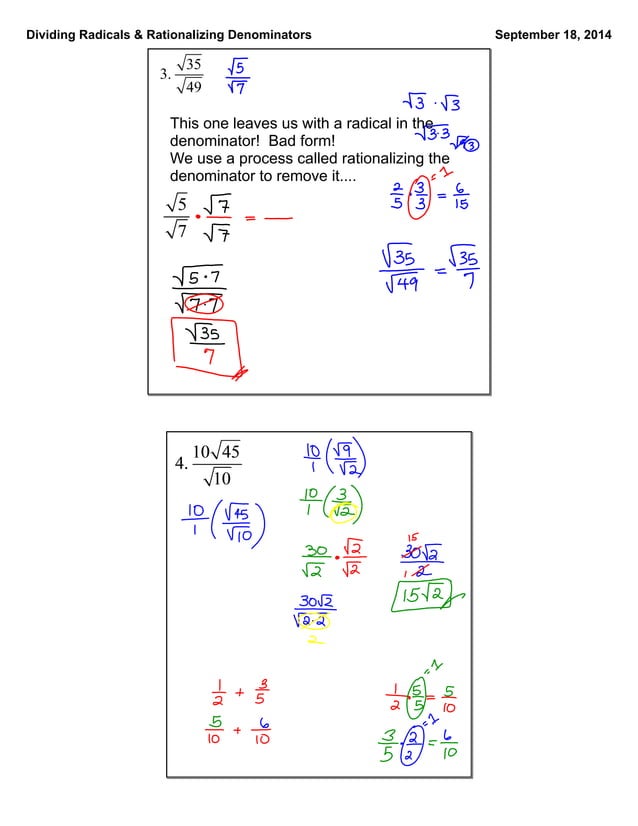 Dividing Radicals & Rationalizing Denominators September 18, 2014
3. √35/√49 √5/√7
√3 · √3
This one leaves us with a radical in the
√3·3
denominator! Bad form!
We use a process called rationalizing the
denominator to remove it....
= 1
2/5 · 3/3 = 6/15
√5/√7 • √7/√7 = —
√35/√49 = √35/7
√5·7/√7·7
√35/7
4. 10√45/√10
10/1 (√9/√2)
10/1 (3/√2)
10/1 (√45/√10)
30/√2 • √2/√2
15
30√2/2
1
15√2
30√2/√2·2
2
1/2 + 3/5
= 1
1/2 · 5/5 = 5/10
5/10 + 6/10
= 1
3/5 · 2/2 = 6/10